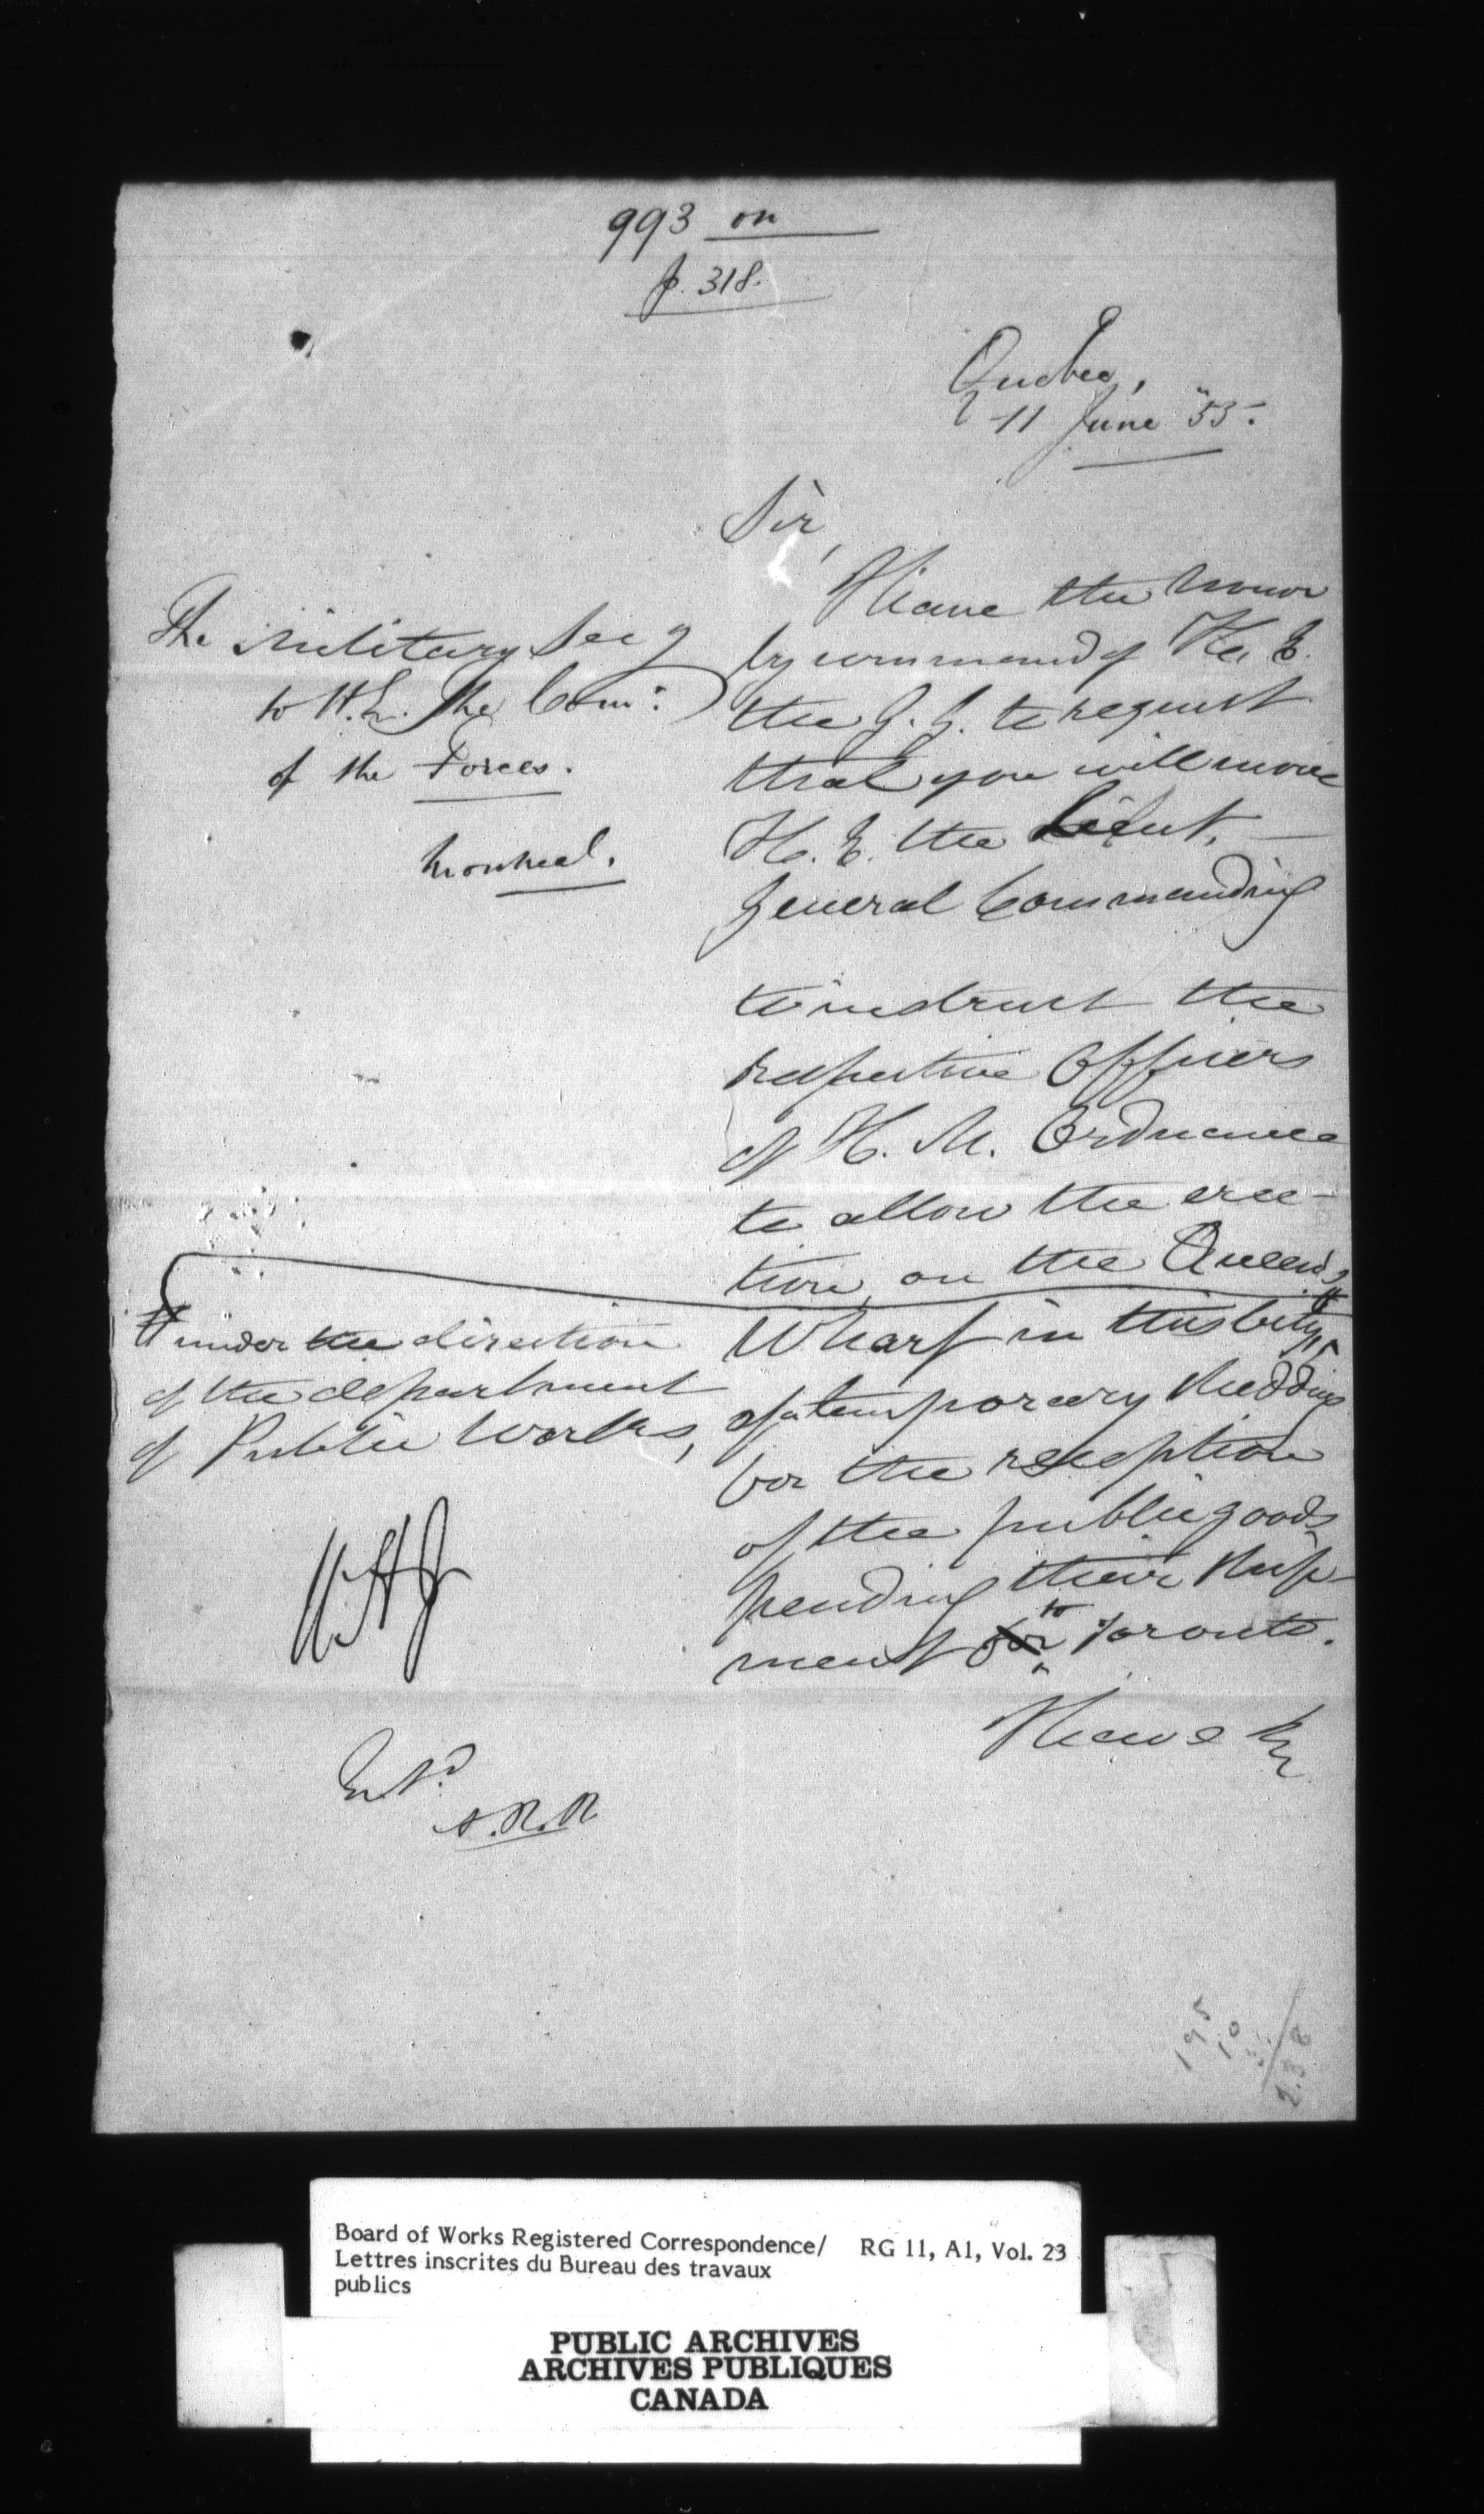 993 on
p. 318.
Quebec,
11 June "55.
Sir,
The Military Secy
to H.E. The Com:
of the Forces.
Montreal.
I have the honor
by command of His E.
the G. G. to request
that you will move
H. E. the Lieut.
General Commanding
to instruct the
respective Officers
of H. M. Ordnance
to allow the erec-
tion, on the Queen's
Wharf in this City,
# under the direction
of the department
of Public Works,
of a temporary shedding
for the reception
of the public goods
pending their ship-
ment for to Toronto.
I have &c
Entd
195
10
238
Board of Works Registered Correspondence/ RG 11, A1, Vol. 23
Lettres inscrites du Bureau des travaux
publics
PUBLIC ARCHIVES
ARCHIVES PUBLIQUES
CANADA